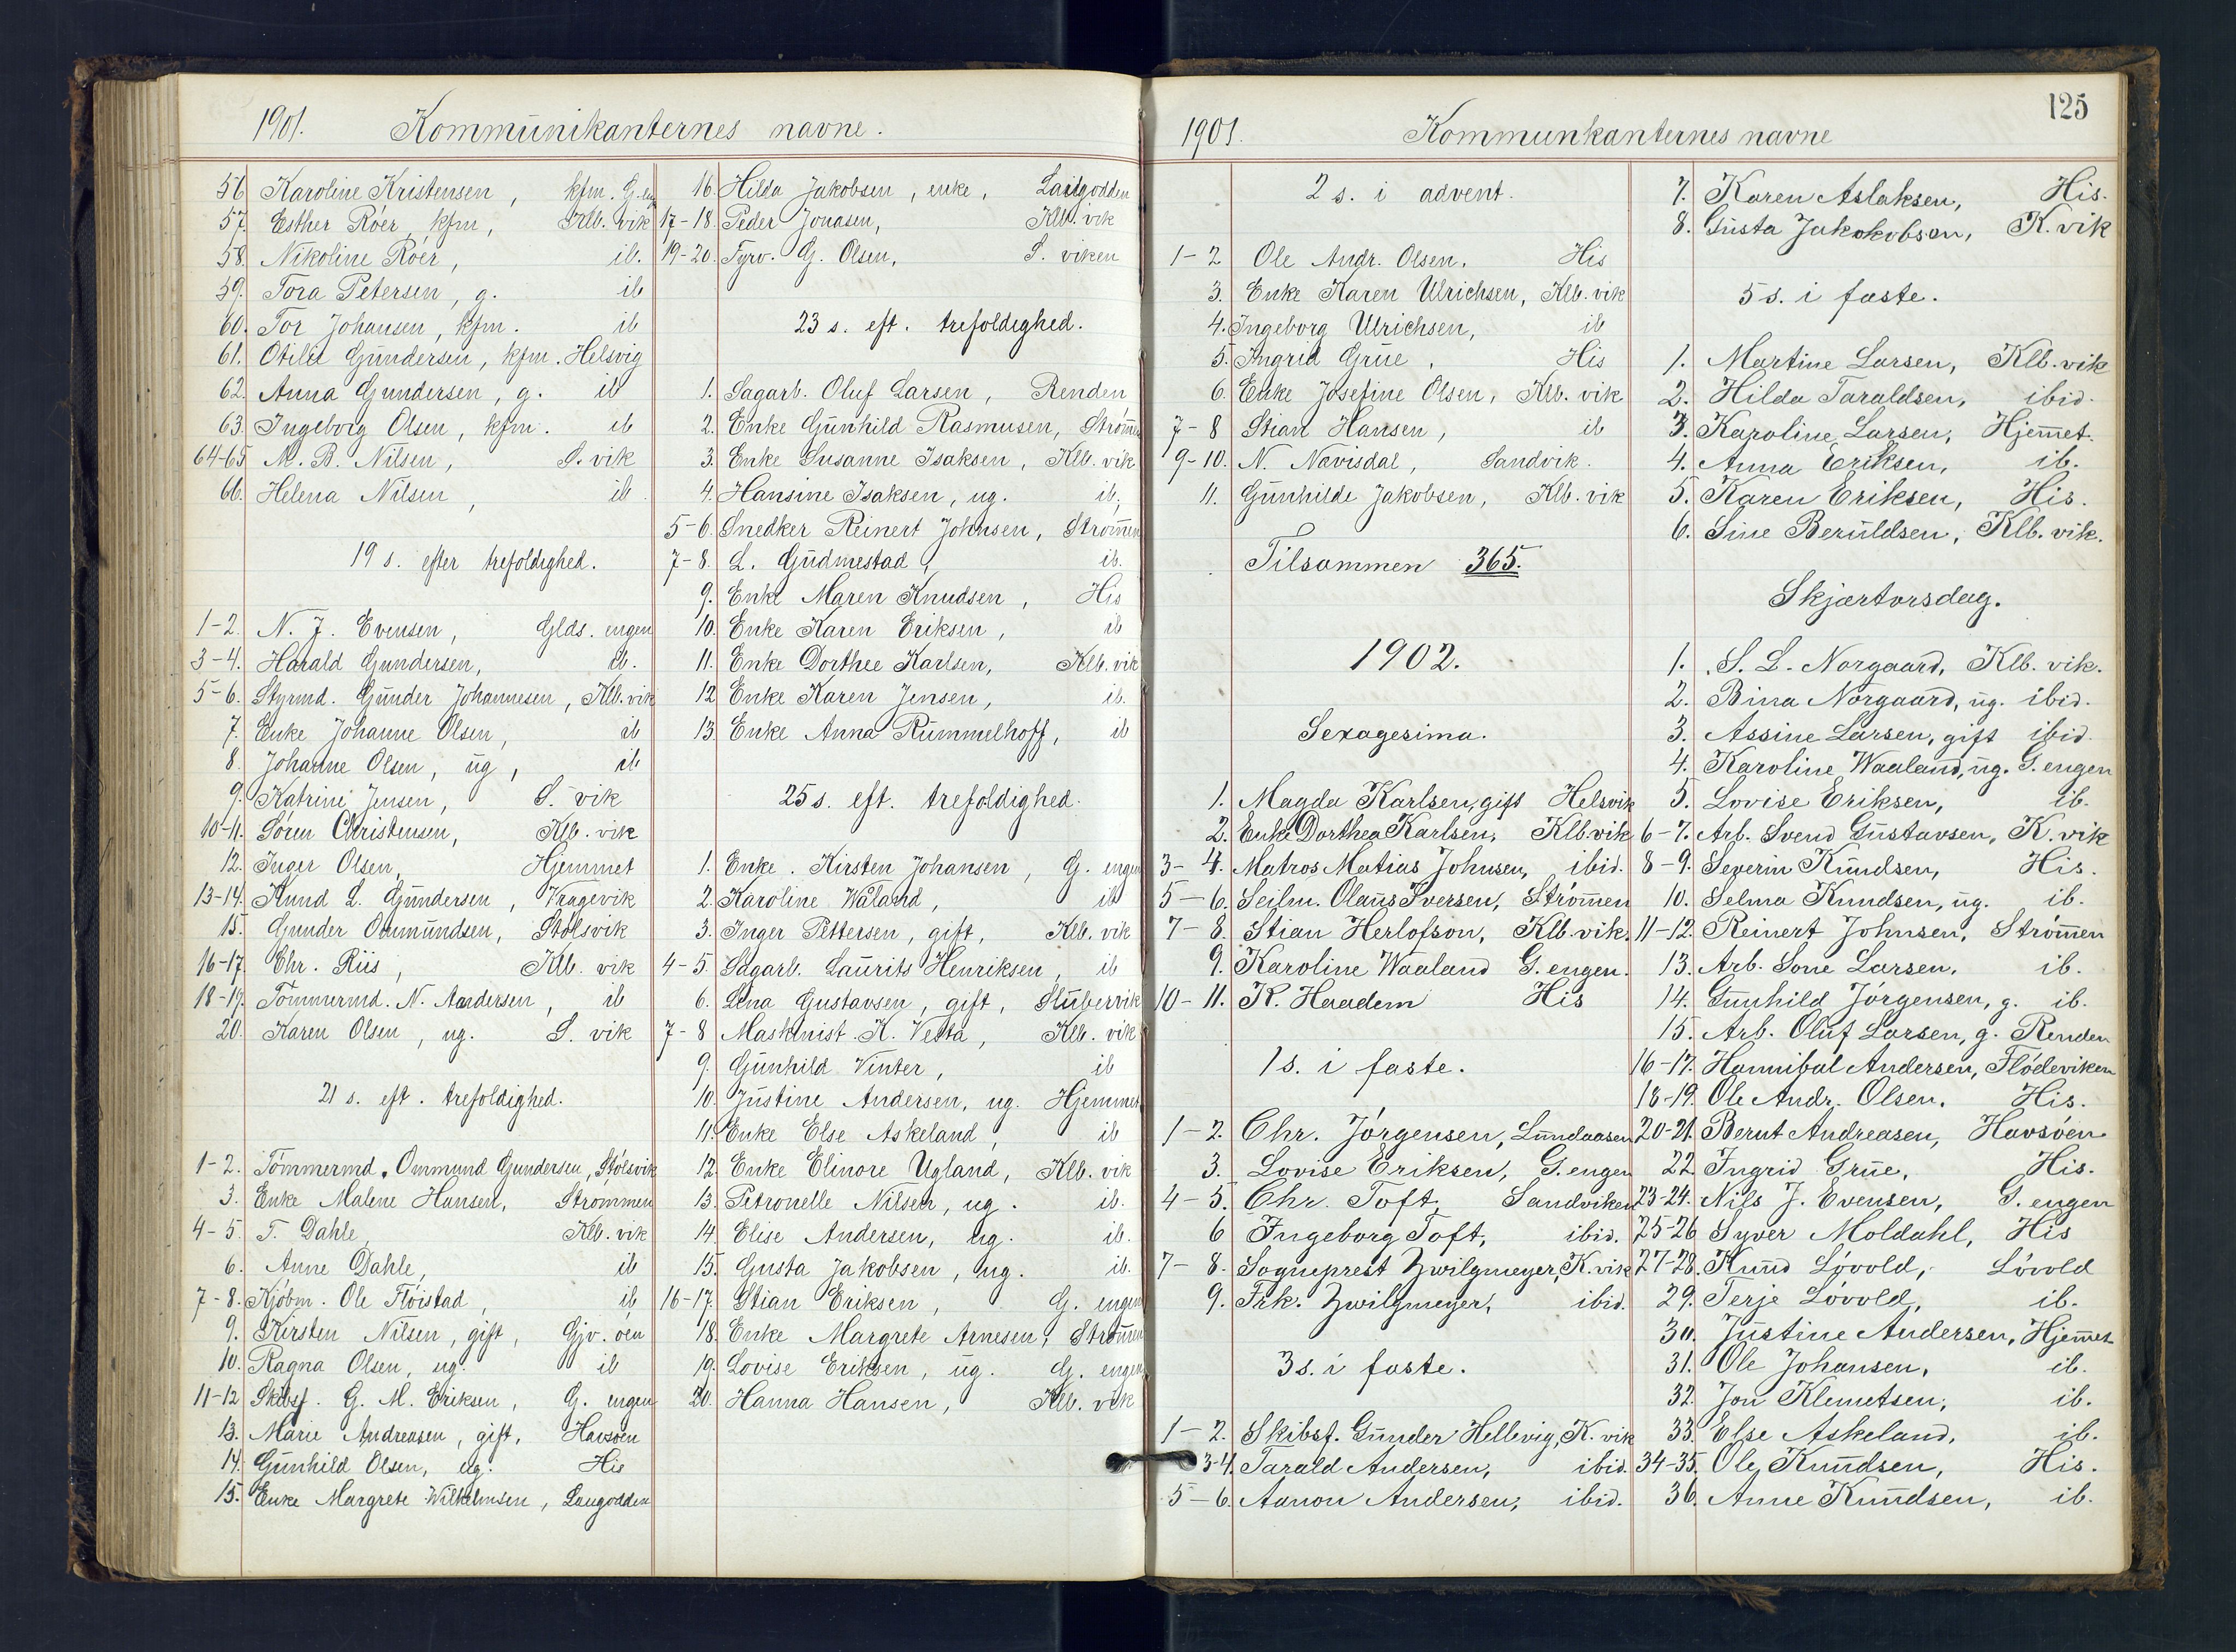 1901. Kommunikanternes navne.
56 Karoline Kristensen, kfm. G.eng
57. Esther Róer, kfm, Klb. vik
58. Nikoline Róer, ib.
59. Tora Petersen, g. ib
60. Tor Johansen, kfm. ib
61. Otilie Gundersen, kfm. Helsvig
62. Anna Gundersen, g. ib
63. Ingeborg Olsen, kfm. ib
64-65 M. B. Nilsen, S. vik
66. Helena Nilsen, ib.
19 s. efter trefoldighed.
1-2. N. J. Evensen, Glds. engen
3-4. Harald Gundersen, ib.
5-6. Styrmd. Gunder Johannesen, Klb. vik
7. Enke Johanne Olsen, ib
8. Johanne Olsen, ug, ib
9. Katrine Jensen, S. vik
10-11. Sören Christensen, Klb. vik
12. Inger Olsen, Hjemmet
13-14. Knud L. Gundersen, Vragevik
15. Gunder Ommundsen, Stólsvik
16-17. Chr. Riis, Klb. vik
18-19. Tömmermd. N. Andersen, ib
20. Karen Olsen, ug. S. vik
21 s. eft. trefoldighed.
1-2. Tömmermd. Ommund Gundersen, Stólsvik
3. Enke Malene Hansen, Strømmen
4-5. T. Dahle, Klb. vik
6. Anne Dahle, ib
7-8. Kjöbm. Ole Flöistad, ib
9. Kirsten Nilsen, gift, Gjv. öen
10. Ragna Olsen, ug. ib
11-12 Skibsf. G. M. Eriksen, G. engen
13. Marie Andreasen, gift, Havsöen
14. Gunhild Olsen, ug. His
15. Enke Margrete Wilhelmsen, Laugodden
16. Hilda Jakobsen, enke, Laugodden
17-18. Peder Jonasen, Klb. vik
19-20. Fyrv. G. Olsen, S. viken
23 s. eft. trefoldighed.
1. Sagarb. Oluf Larsen, Renden
2. Enke Gunhild Rasmusen, Strömm
3. Enke Susanne Isaksen, Klb. vik
4. Hansine Isaksen, ug. ib.
5-6. Snedker Reinert Johnsen, Strömmen
7-8. L. Gudmestad, ib.
9. Enke Maren Knudsen, His
10. Enke Karen Eriksen, ib
11. Enke Dorthee Karlsen, Klb. vik
12 Enke Karen Jensen, ib.
13. Enke Anna Rummelhoff, ib
25 s. eft. trefoldighed.
1. Enke. Kirsten Johansen, G. engen
2. Karoline Wåland, ib
3. Inger Pettersen, gift, Klb. vik
4-5. Sagarb. Laurits Henriksen, ib
6. Lena Gustavsen, gift, Stubervik
7-8 Maskinist. K. Vesta, Klb. vik
9. Gunhild Vinter, ib
10. Justine Andersen, ug. Hjemmet
11. Enke Else Askeland, ib
12. Enke Elinore Ugland, Klb. vik
13. Petronelle Nilsen, ug. ib.
14. Elise Andersen, ug. ib.
15. Gusta Jakobsen, ug. ib.
16-17. Stian Eriksen, G. engen
18. Enke Margrete Arnesen, Strömmen
19. Lovise Eriksen, ug. G. engen
20. Hanna Hansen, Klb. vik
125
1901. Kommunkanternes navne
2 s. i advent.
1-2 Ole Andr. Olsen. His
3. Enke Karen Ulrichsen, Klb. vik
4. Ingeborg Ulrichsen, ib
5. Ingrid Grue, His
6. Enke Josefine Olsen, Klb. vik
7-8 Stian Hansen, ib
9-10. N. Navisdal, Sandvik.
11. Gunhilde Jakobsen, Klb. vik
Tilsammen 365.
1902.
Sexagesima.
1. Magda Karlsen, gift Helsvik
2. Enke Dorthea Karlsen, Klb.vik
3-4. Matros Matias Johnsen, ibid.
5-6. Seilm. Olaus Iversen, Strömmen
7-8. Stian Herlofson, Klb. vik.
9. Karoline Waaland G. engen.
10-11. K. Haadem His
1 s. i faste.
1-2. Chr. Jörgensen, Lundaasen
3. Lovise Eriksen, G. engen
4-5. Chr. Toft, Sandviken
6 Ingeborg Toft, ibid.
7-8. Sogneprest Zwilgmeyer, K. vik
9. Frk. Zwilgmeyer, ibid.
3 s. i faste.
1-2. Skibsf. Gunder Hellevig, K. vik
3-4. Tarald Andersen, ibid.
5-6. Aanon Andersen, ibid.
7. Karen Aslaksen, His.
8. Gusta Jakokobsen, K. vik
5 s. i faste.
1. Martine Larsen, Klb. vik
2. Hilda Taraldsen, ibid.
3. Karoline Larsen, Hjem̅et.
4. Anna Eriksen, ib.
5. Karen Eriksen, His.
6. Sine Beruldsen, Klb. vik.
Skjærtorsdag.
1. S. L. Norgaard, Klb. vik.
2. Bina Norgaard, ug. ibid.
3. Assine Larsen, gift ibid.
4. Karoline Waaland, ug. G. engen
5. Lovise Eriksen, ib.
6-7. Arb. Svend Gustavsen, K. vik
8-9. Severin Knudsen, His.
10. Selma Knudsen, ug. ib.
11-12. Reinert Johnsen, Ström̅en
13. Arb. Sone Larsen. ib.
14. Gunhild Jörgensen, g. ib.
15. Arb. Oluf Larsen, g. Renden
16-17. Hannibal Andersen, Flödeviken
18-19. Ole Andr. Olsen. His.
20-21. Bernt Andreasen, Havsöen
22. Ingrid Grue, His.
23-24. Nils J. Evensen, G. engen
25-26 Syver Moldahl, His
27-28. Knud Lövold, Lövold
29. Terje Lövold, ib.
30. Justine Andersen, Hjem̅et
31. Ole Johansen, ib.
32. Jon Klemetsen, ib.
33. Else Askeland, ib.
34-35. Ole Knudsen, His.
36. Anne Knudsen, ib.